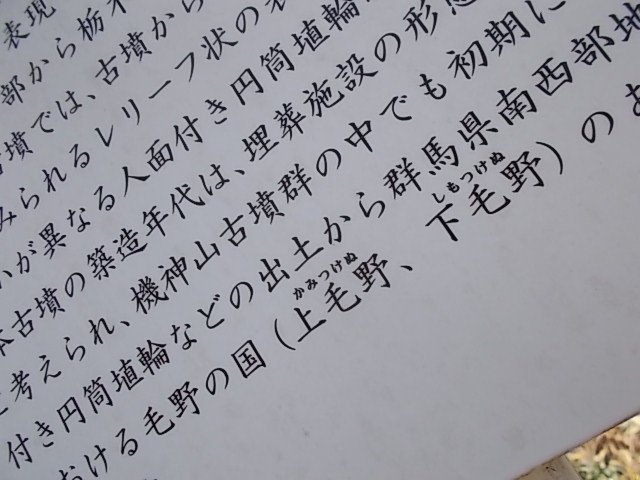 表現
部から栃木
古墳では、古墳から
みられるレリーフ状の表
が異なる人面付き円筒埴輪
古墳の築造年代は、埋葬施設の形態
と考えられ、機神山古墳群の中でも初期に
付き円筒埴輪などの出土から群馬県南西部地
おける毛野の国(上毛野、下毛野)のあ
かみつけぬ
しもつけぬ